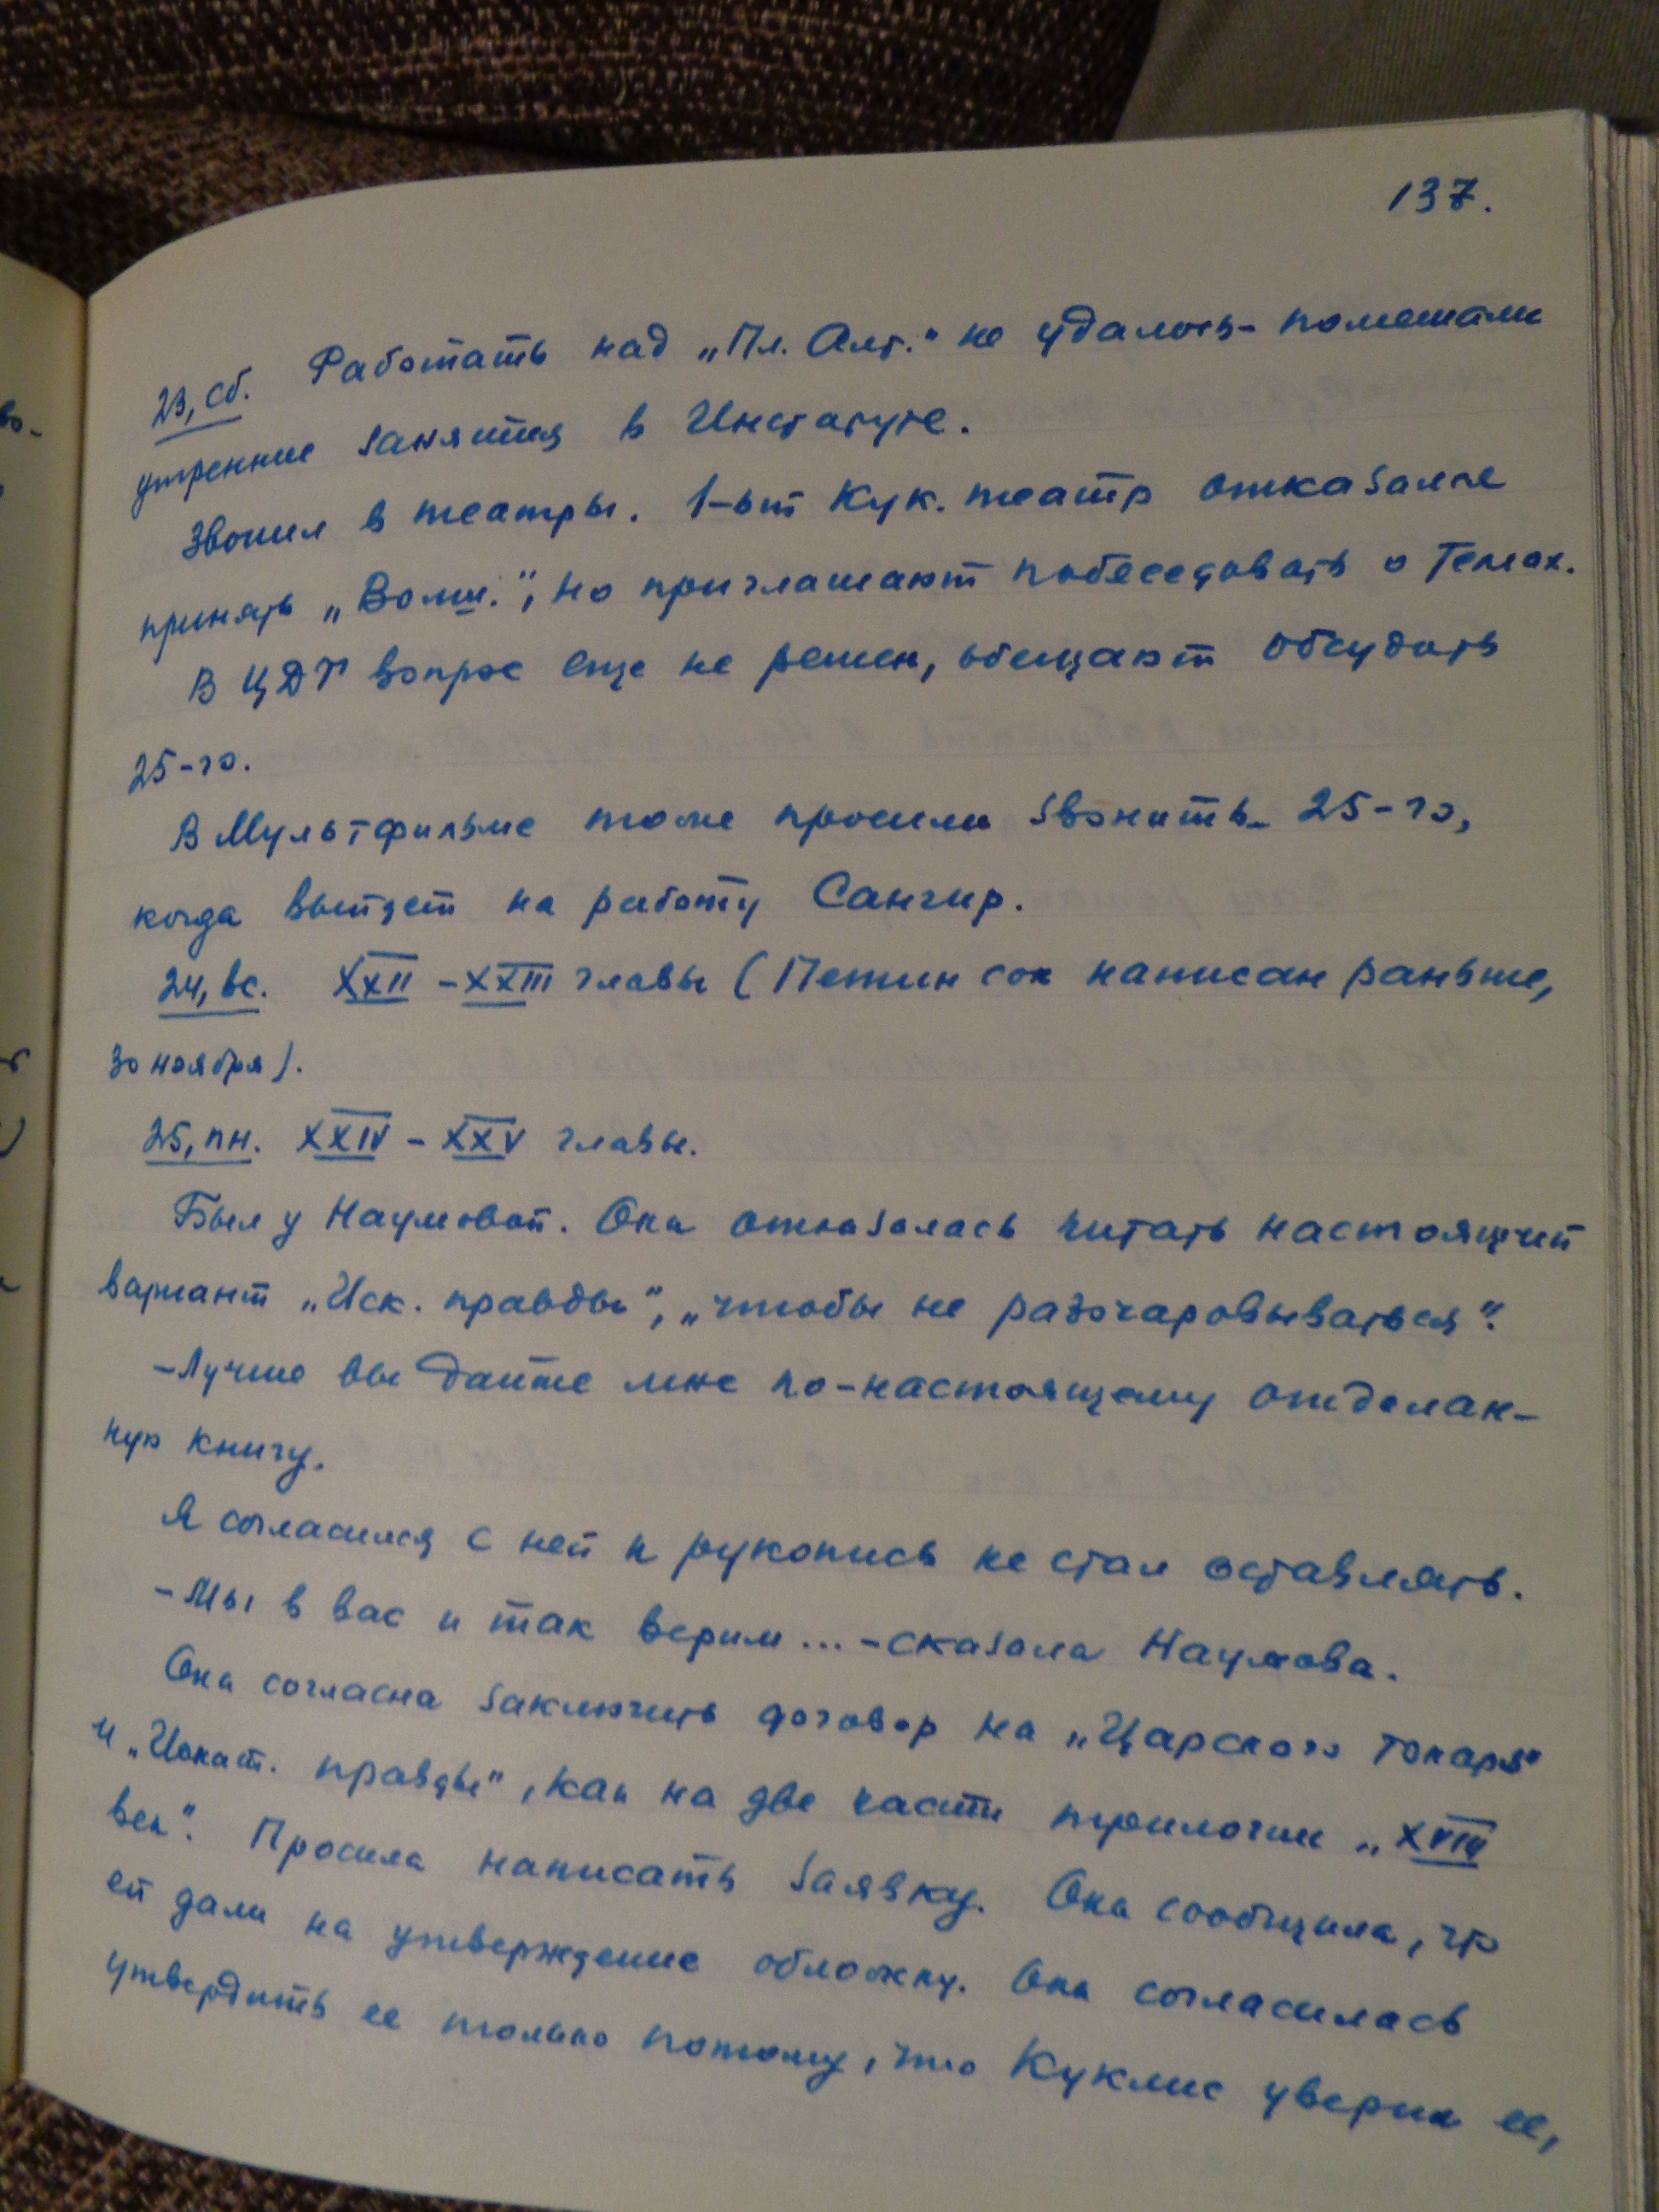 137.
23, сб. Работать над „Пл. Алт.“ не удалось - помешали
утренние занятия в Институте.
Звонил в театры. 1-ый Кук. театр отказался
принять „Волш.“, но приглашают побеседовать о темах.
В ЦДТ вопрос еще не решен, обещают обсудить
25-го.
В Мультфильме тоже просили звонить 25-го,
когда выйдет на работу Сангир.
24, вс. XXII - XXIII главы (Петин сон написан раньше,
30 ноября).
25, пн. XXIV - XXV главы.
Был у Наумовой. Она отказалась читать настоящий
вариант „Иск. правды“, „чтобы не разочаровываться“.
- Лучше вы дайте мне по-настоящему отделан-
ную книгу.
Я согласился с ней и рукопись не стал оставлять.
- Мы в вас и так верим... - сказала Наумова.
Она согласна заключить договор на „Царского токаря“
и „Искат. правды“, как на две части трилогии „XVIII
век“. Просила написать заявку. Она сообщила, что
ей дали на утверждение обложку. Она согласилась
утвердить ее только потому, что Куклис уверил ее,